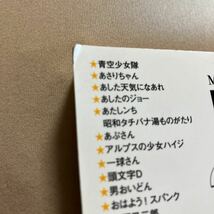 ★青空少女隊
★あさりちゃん
★あした天気になあれ
★あしたのジョー
★あたしンち
昭和タチバナ湯ものがたり
★あぶさん
★アルプスの少女ハイジ
★一球さん
★頭文字D
★男おいどん
★おはよう!スパンク
M